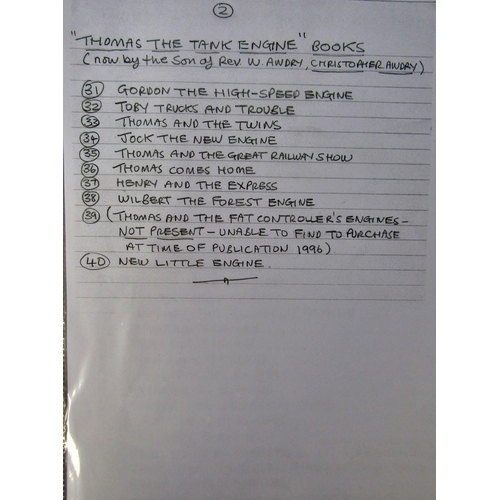 2
"THOMAS THE TANK ENGINE" BOOKS
(now by the Son of Rev. W. AWDRY, CHRISTOPHER AWDRY)
31 GORDON THE HIGH-SPEED ENGINE
32 TOBY TRUCKS AND TROUBLE
33 THOMAS AND THE TWINS
34 JOCK THE NEW ENGINE
35 THOMAS AND THE GREAT RAILWAY SHOW
36 THOMAS COMES HOME
37 HENRY AND THE EXPRESS
38 WILBERT THE FOREST ENGINE
39 (THOMAS AND THE FAT CONTROLLER'S ENGINES -
NOT PRESENT - UNABLE TO FIND TO PURCHASE
AT TIME OF PUBLICATION 1996)
40 NEW LITTLE ENGINE.